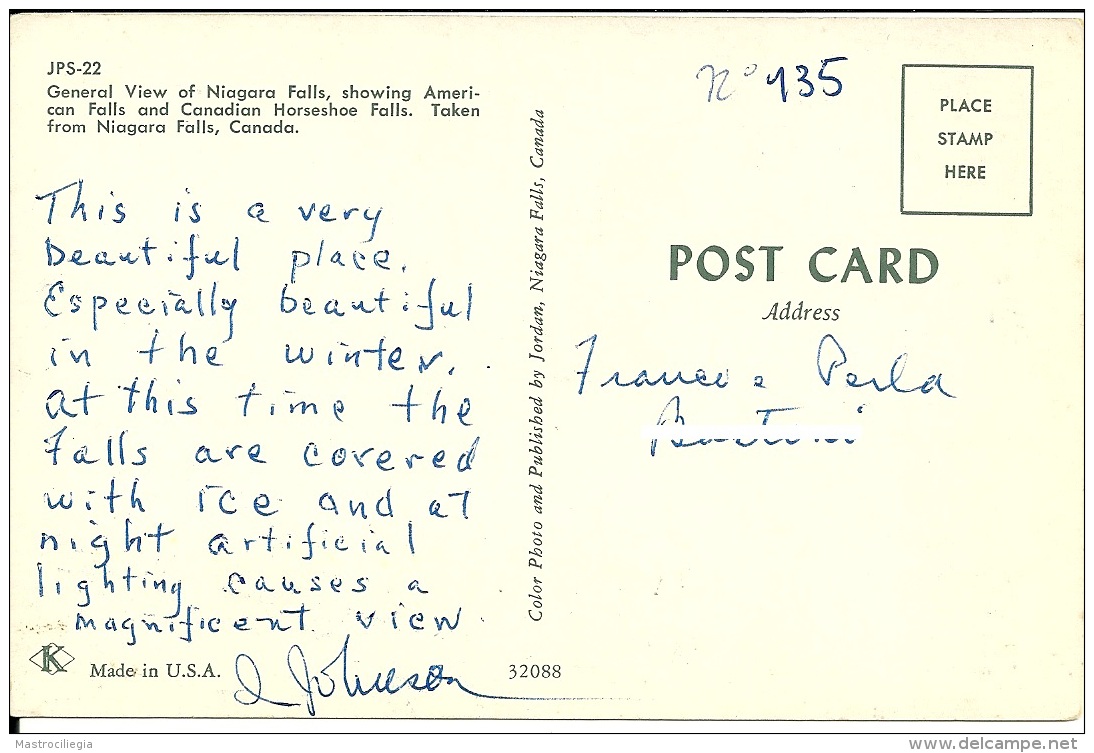 JPS-22
General View of Niagara Falls, showing Ameri-
can Falls and Canadian Horseshoe Falls. Taken
from Niagara Falls, Canada.
This is a very
beautiful place.
Especially beautiful
in the winter.
At this time the
Falls are covered
with ice and at
night artificial
lighting causes a
magnificent view
K
Made in U.S.A.
J Johnson
32088
Color Photo and Published by Jordan, Niagara Falls, Canada
N° 935
PLACE
STAMP
HERE
POST CARD
Address
Franco e Perla
Mastrociliegia
delcampe.net